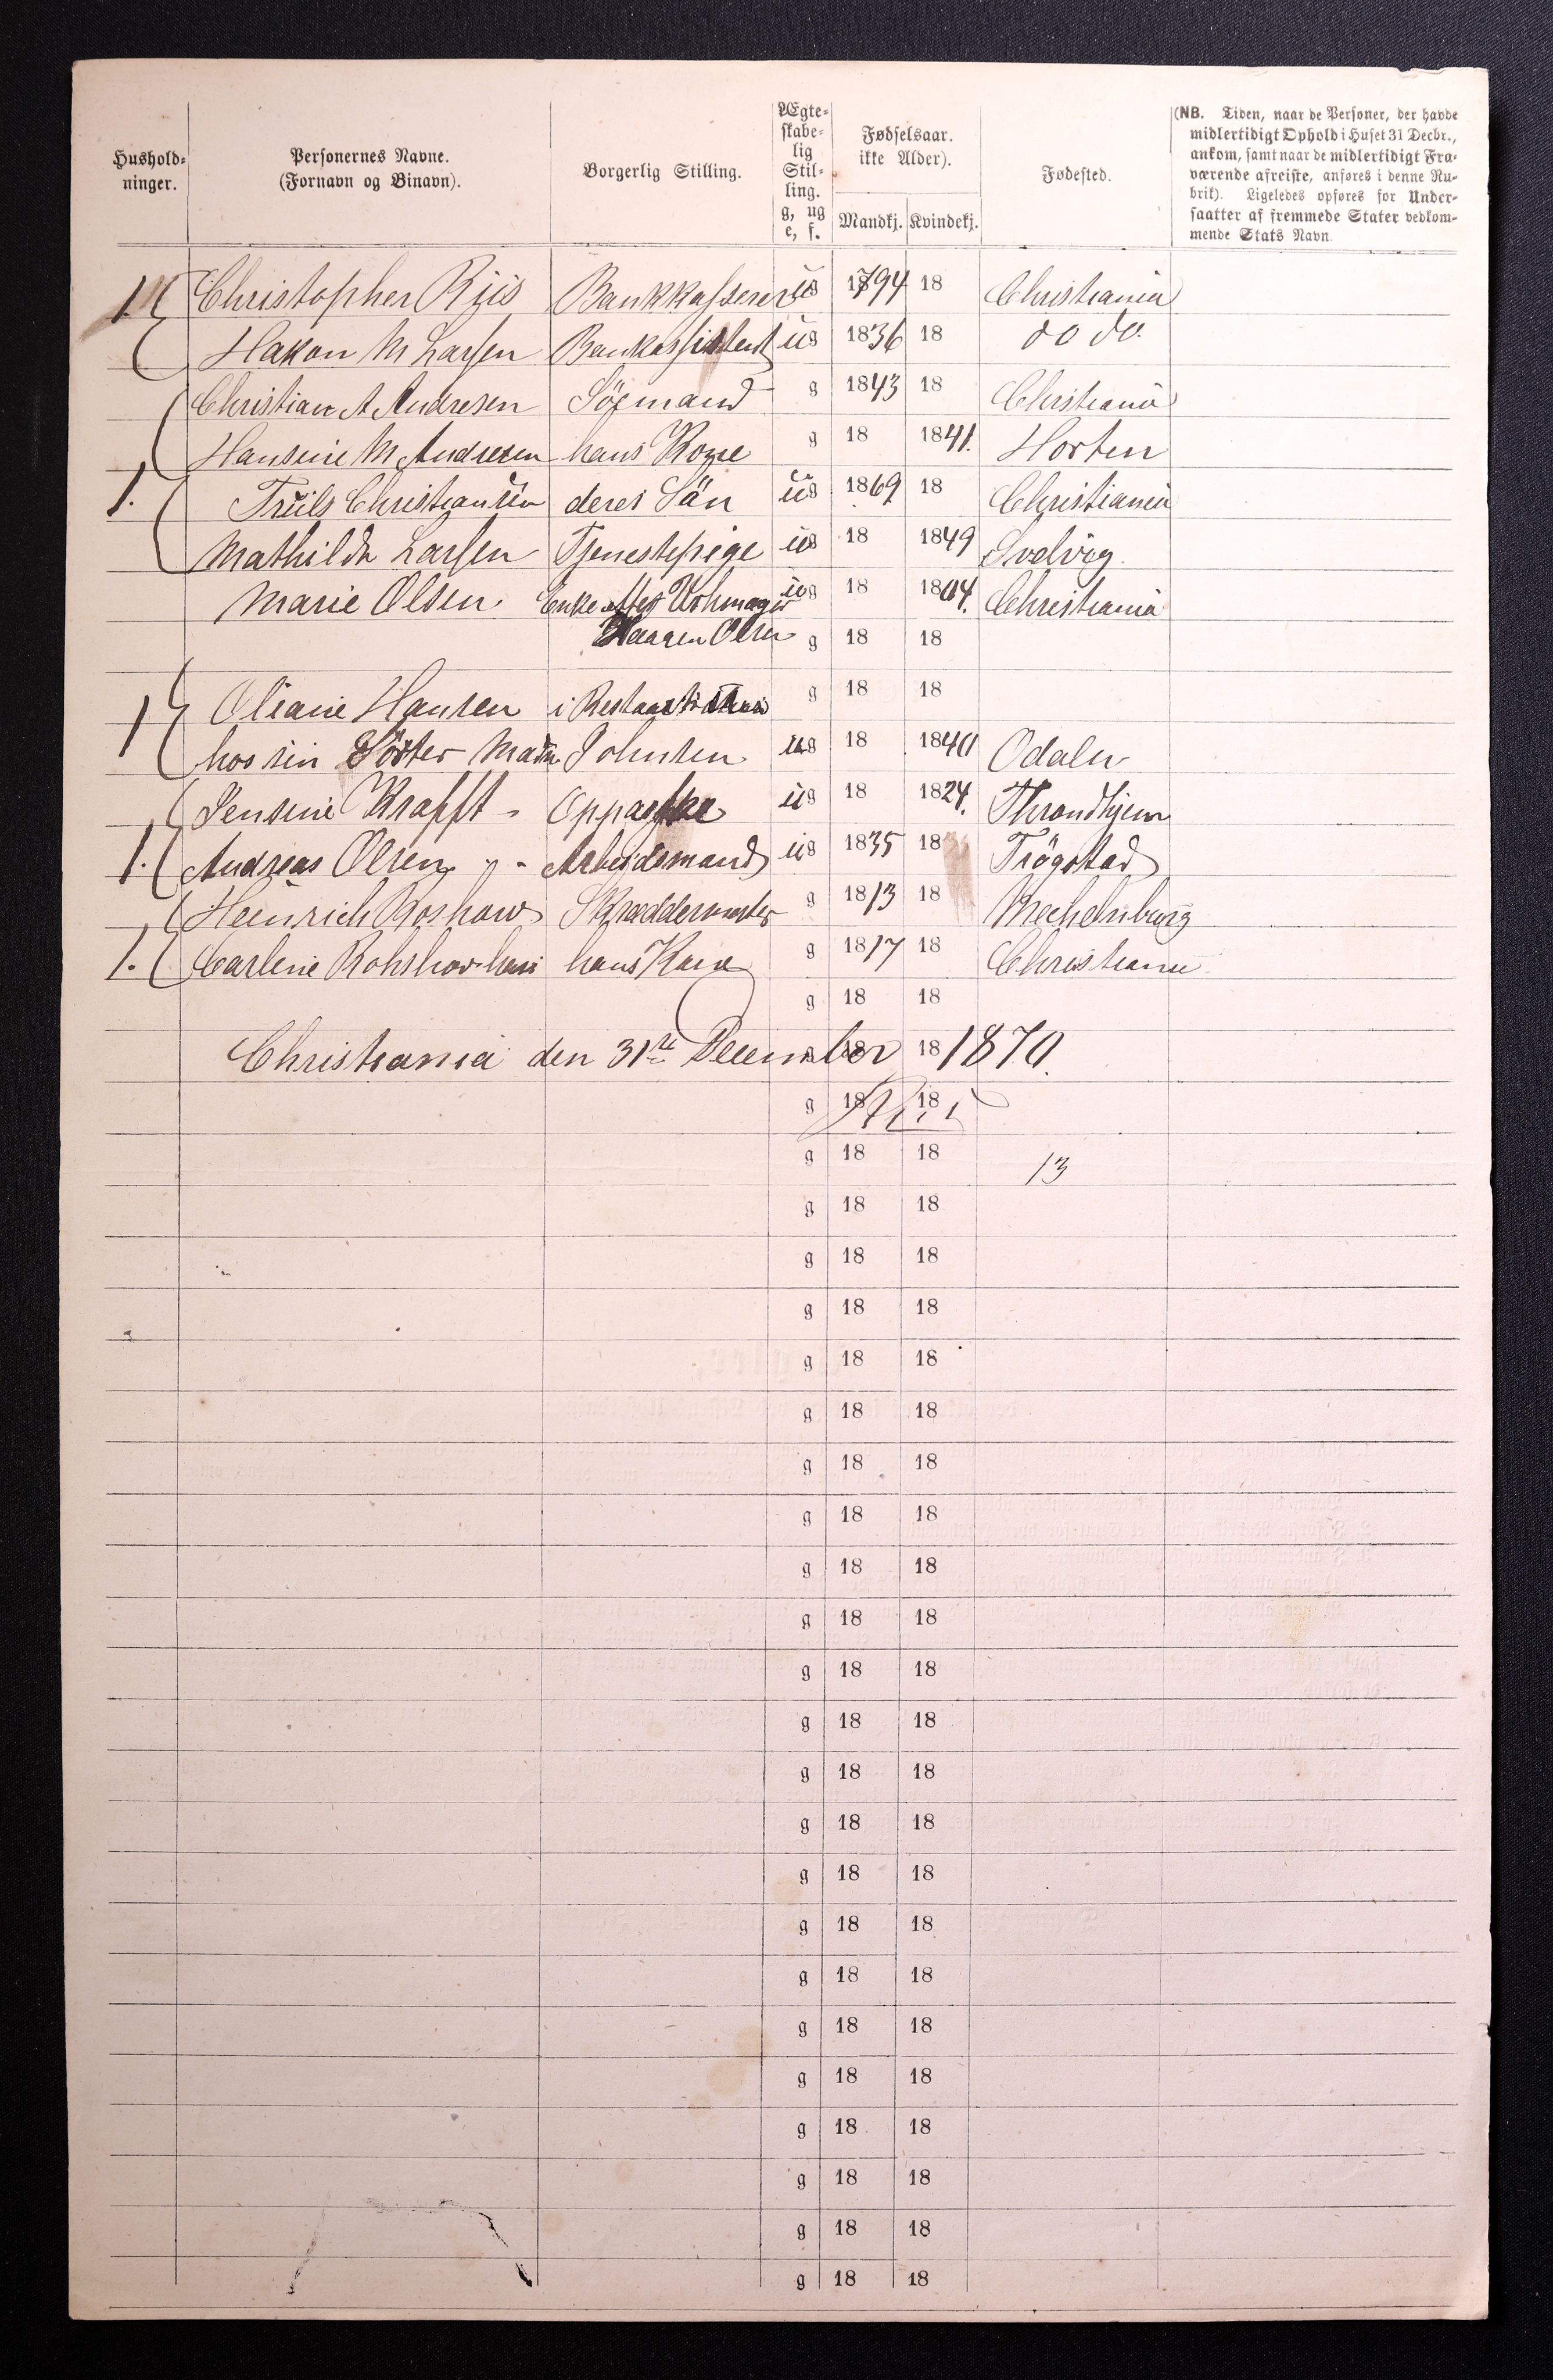 Hushold-
ninger.
Personernes Navne.
(Fornavn og Binavn).
Borgerlig Stilling.
Ægte-
skabe-
lig
Stil-
ling.
g, ug
e, f.
Fødselsaar.
ikke Alder).
Mandkj. Kvindekj.
Fødested.
(NB. Tiden, naar de Personer, der havde
midlertidigt Ophold i Huset 31 Decbr.,
ankom, samt naar de midlertidigt Fra-
værende afreiste, anføres i denne Ru-
brik). Ligeledes opføres for Under-
saatter af fremmede Stater vedkom-
mende Stats Navn.
1. Christopher Riis Bankkasserer ug 1794 18 Christiania
Hakon M Larsen Bankassistent ug 1836 18 do do.
Christian A Andresen Sömand g 1843 18 Christiania
Hansine M Andresen hans Kone g 18 1841. Horten
1. Truls Christiansen deres Sön ug 1869 18 Christiania
Mathilda Larsen Tjenestepige ug 18 1849 Svelvig.
Marie Olsen Enke efter Urhmager g 18 1804. Christiania
Haagen Olsen g 18 18
1 Oliane Hansen i g 18 18
hos sin Söster Mad. Johnsen ug 18 1840 Odalen
Jensine Krafft - Oppasske ug 18 1824. Throndhjem
1. Andreas Olsen - Arbeidsmand ug 1835 18 Trögstad
Heinrich Roshow Skræddermester g 1813 18 Mechelnburg
1. Carline Rohshow hans Kone g 1817 18 Christiania
g 18 18
Christiania den 31te December 18 1870.
g 18 18 Riis
g 18 18 13
g 18 18
g 18 18
g 18 18
g 18 18
g 18 18
g 18 18
g 18 18
g 18 18
g 18 18
g 18 18
g 18 18
g 18 18
g 18 18
g 18 18
g 18 18
g 18 18
g 18 18
g 18 18
g 18 18
g 18 18
g 18 18
g 18 18